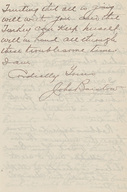 Trusting that all is going
well with you and that
Turkey may keep himself
well in hand all through
these troublesome times
I am
Cordially Yours
John